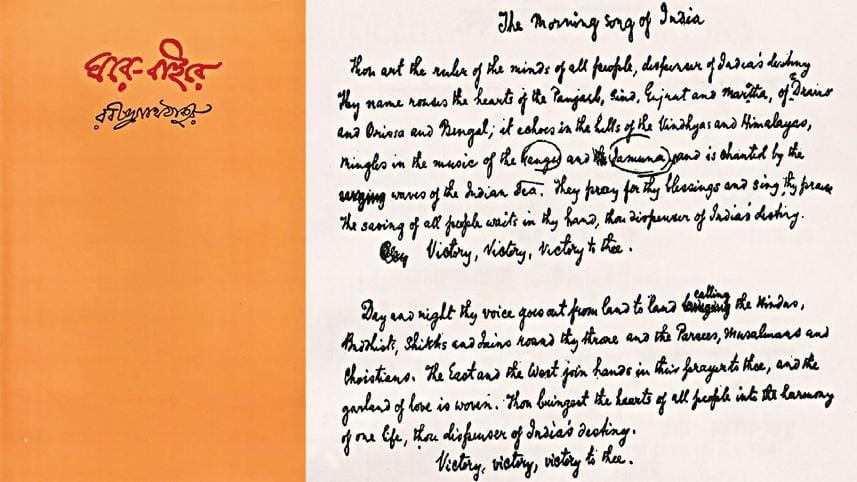 ঘরে-বাইরে
রবীন্দ্রনাথ ঠাকুর
The Morning song of India
Thou art the ruler of the minds of all people, dispenser of India's destiny
Thy name rouses the hearts of the Panjaub, Sind, Gujrat and Maratha, of Dravid
and Orissa and Bengal; it echoes in the hills of the Vindhyas and Himalayas,
mingles in the music of the Ganges and Jamuna, and is chanted by the
waves of the Indian Sea. They pray for thy blessings and sing thy praise
The saving of all people waits in thy hand, thou dispenser of India's destiny.
Victory, Victory, Victory to thee.
Day and night thy voice goes out from land to land calling the Hindus,
Buddhists, Shikhs and Jains round thy throne and the Parsees, Musalmans and
Christians. The East and the West join hands in their prayer to thee, and the
garland of love is woven. Thou bringest the hearts of all people into the harmony
of one life, thou dispenser of India's destiny.
Victory, victory, victory to thee.